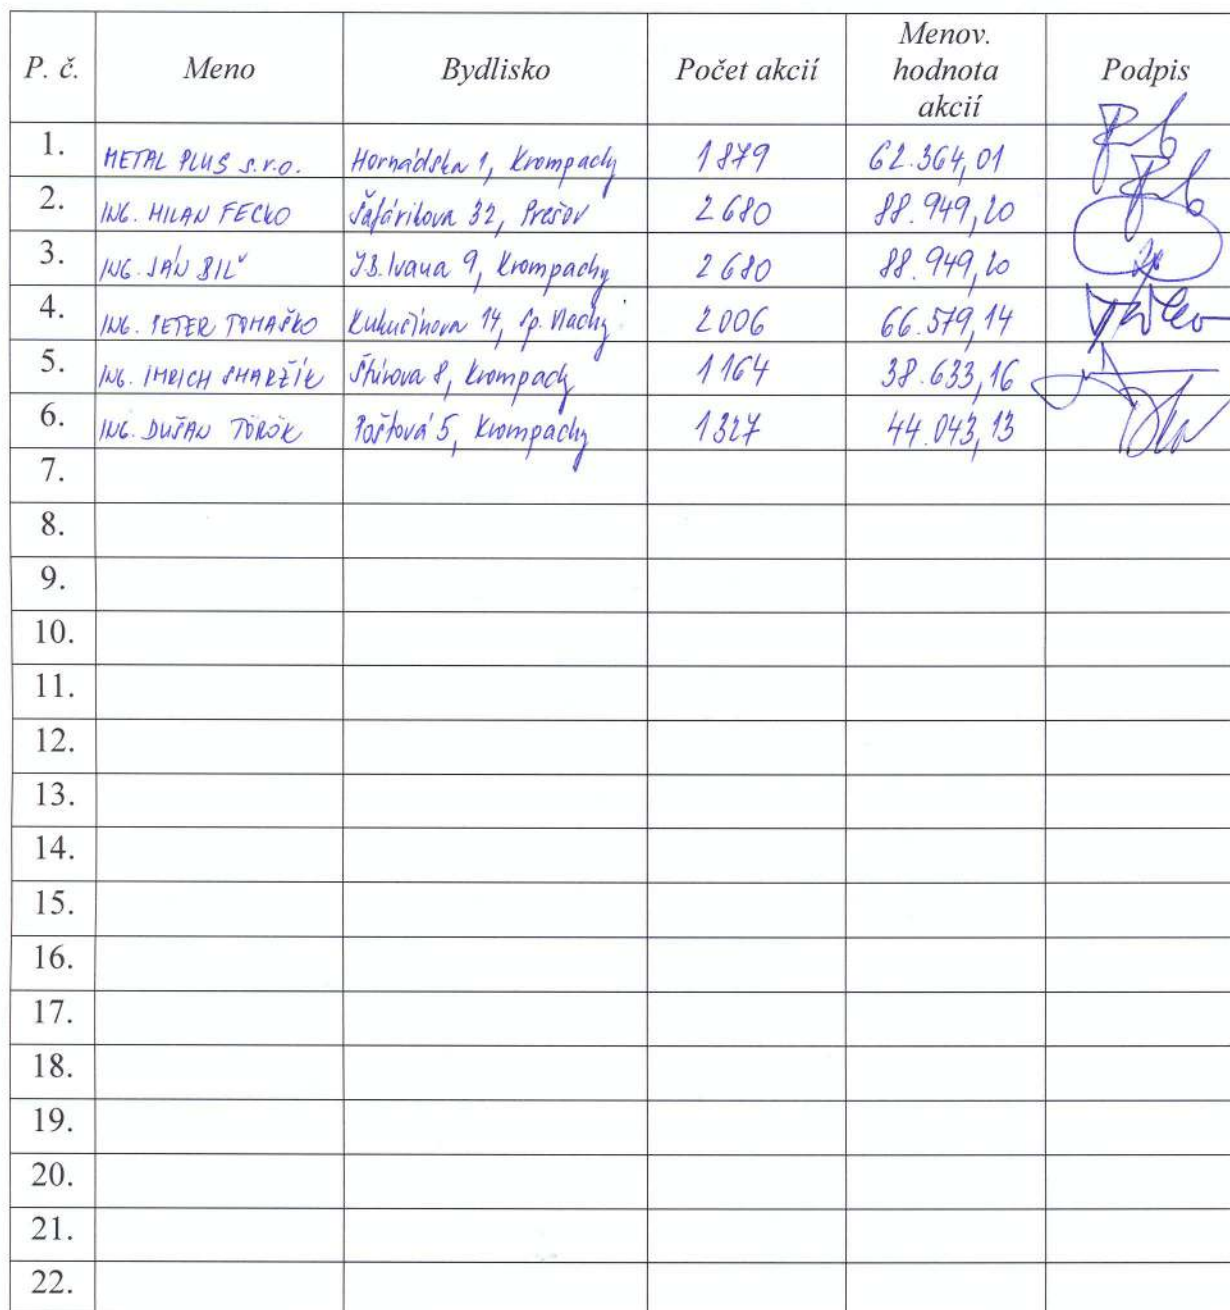 P. č. Meno Bydlisko Počet akcií Menov. hodnota akcií Podpis
1. METAL PLUS s.r.o. Hornádska 1, Krompachy 1879 62.364,01
2. ING. MILAN FECKO Šafárikova 32, Prešov 2680 88.949,20
3. ING. JÁN BILÝ J.B. Ivana 9, Krompachy 2680 88.949,20
4. ING. PETER TOMAŠKO Kukučínova 14, Sp. Vlachy 2006 66.579,14
5. ING. IMRICH SMARŽÍK Štúrova 8, Krompachy 1164 38.633,16
6. ING. DUŠAN TÖRÖK Poštová 5, Krompachy 1327 44.043,13
7.
8.
9.
10.
11.
12.
13.
14.
15.
16.
17.
18.
19.
20.
21.
22.